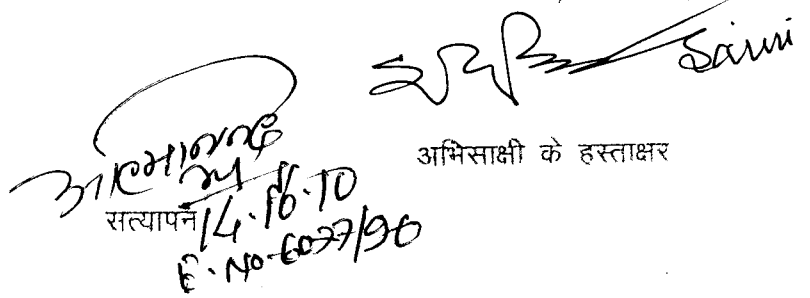 Saini
अभिसाक्षी के हस्ताक्षर
सत्यापन
14.10.10
E. No. 6077/90